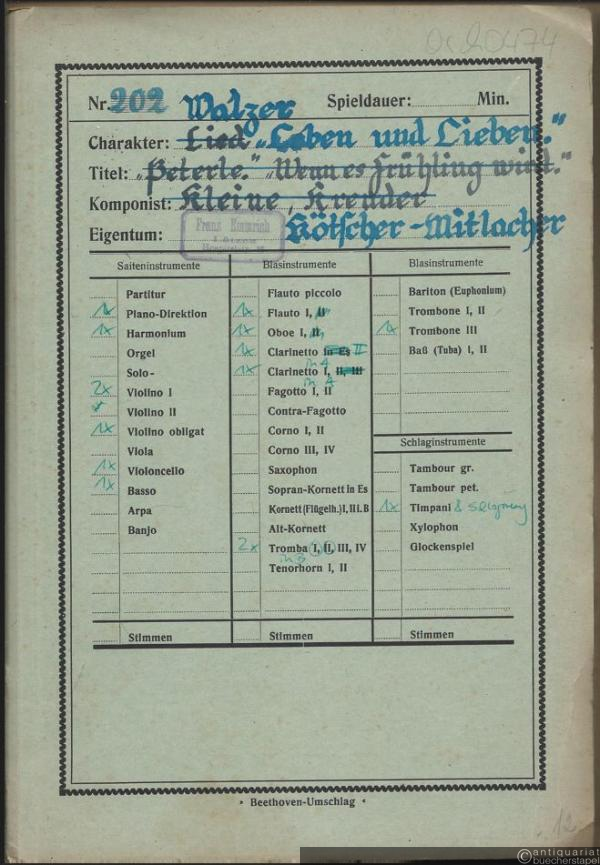 Or20474
Nr. 202 Walzer Spieldauer: Min.
Charakter: Lied „Leben und Lieben."
Titel: „Peterle." „Wenn es Frühling wird."
Komponist: Kleine, Kreuder
Eigentum: Franz Kötscher-Mitlacher
Saiteninstrumente
Partitur
1x Piano-Direktion
1x Harmonium
Orgel
Solo-
2x Violino I
Violino II
1x Violino obligat
Viola
1x Violoncello
1x Basso
Arpa
Banjo
Stimmen
Blasinstrumente
Flauto piccolo
1x Flauto I, II
1x Oboe I, II
1x Clarinetto in Es II
in A
1x Clarinetto I, II, III
in A
Fagotto I, II
Contra-Fagotto
Corno I, II
Corno III, IV
Saxophon
Sopran-Kornett in Es
Kornett (Flügelh.) I, II i. B
Alt-Kornett
2x Tromba I, II, III, IV
in B
Tenorhorn I, II
Stimmen
Blasinstrumente
Bariton (Euphonium)
Trombone I, II
1x Trombone III
Baß (Tuba) I, II
Schlaginstrumente
Tambour gr.
Tambour pet.
1x Timpani & Schlagzeug
Xylophon
Glockenspiel
Stimmen
Beethoven-Umschlag
12
antiquariat
buecherstapel